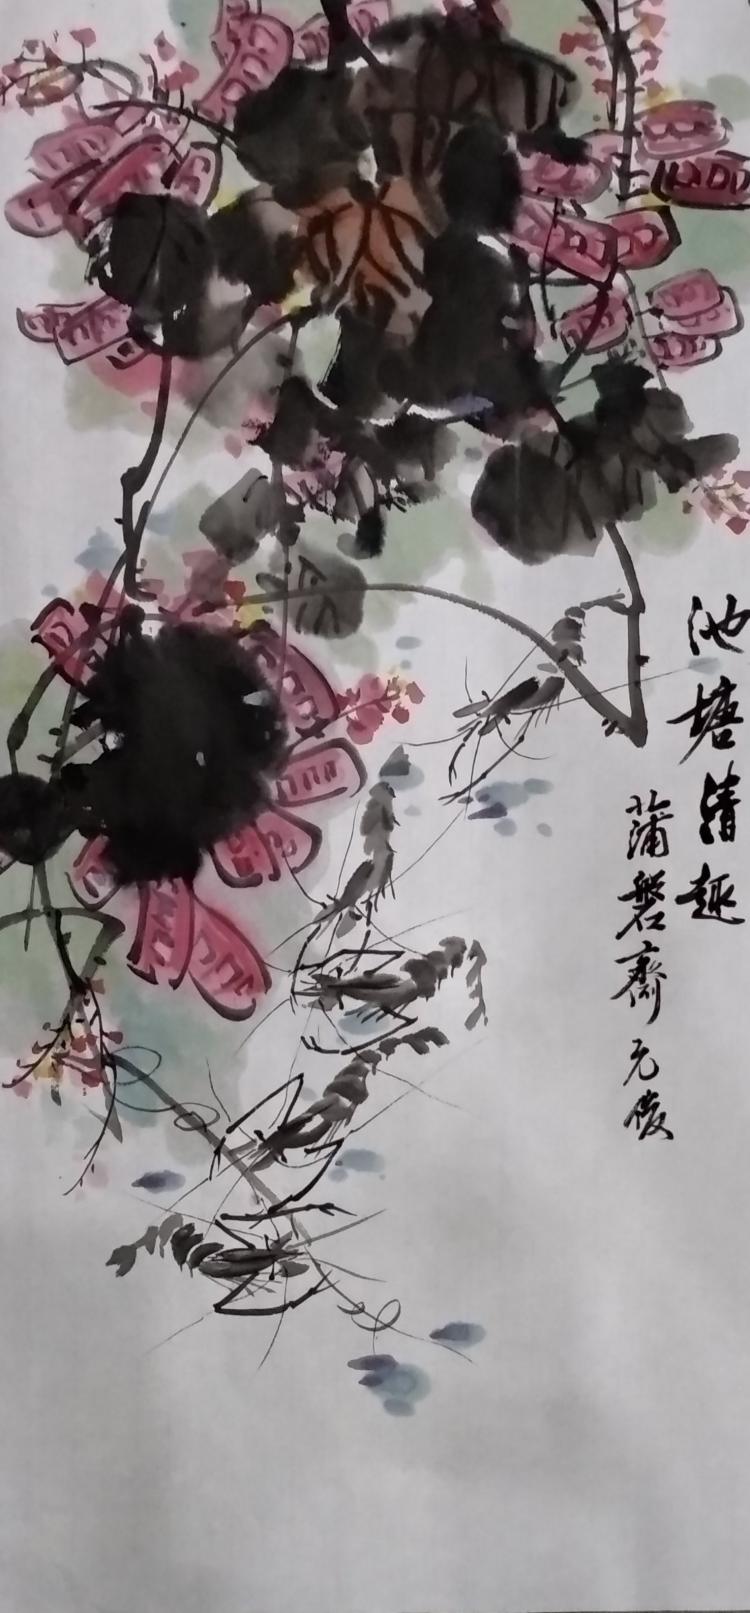 池塘清趣
蒲磐斋元俊